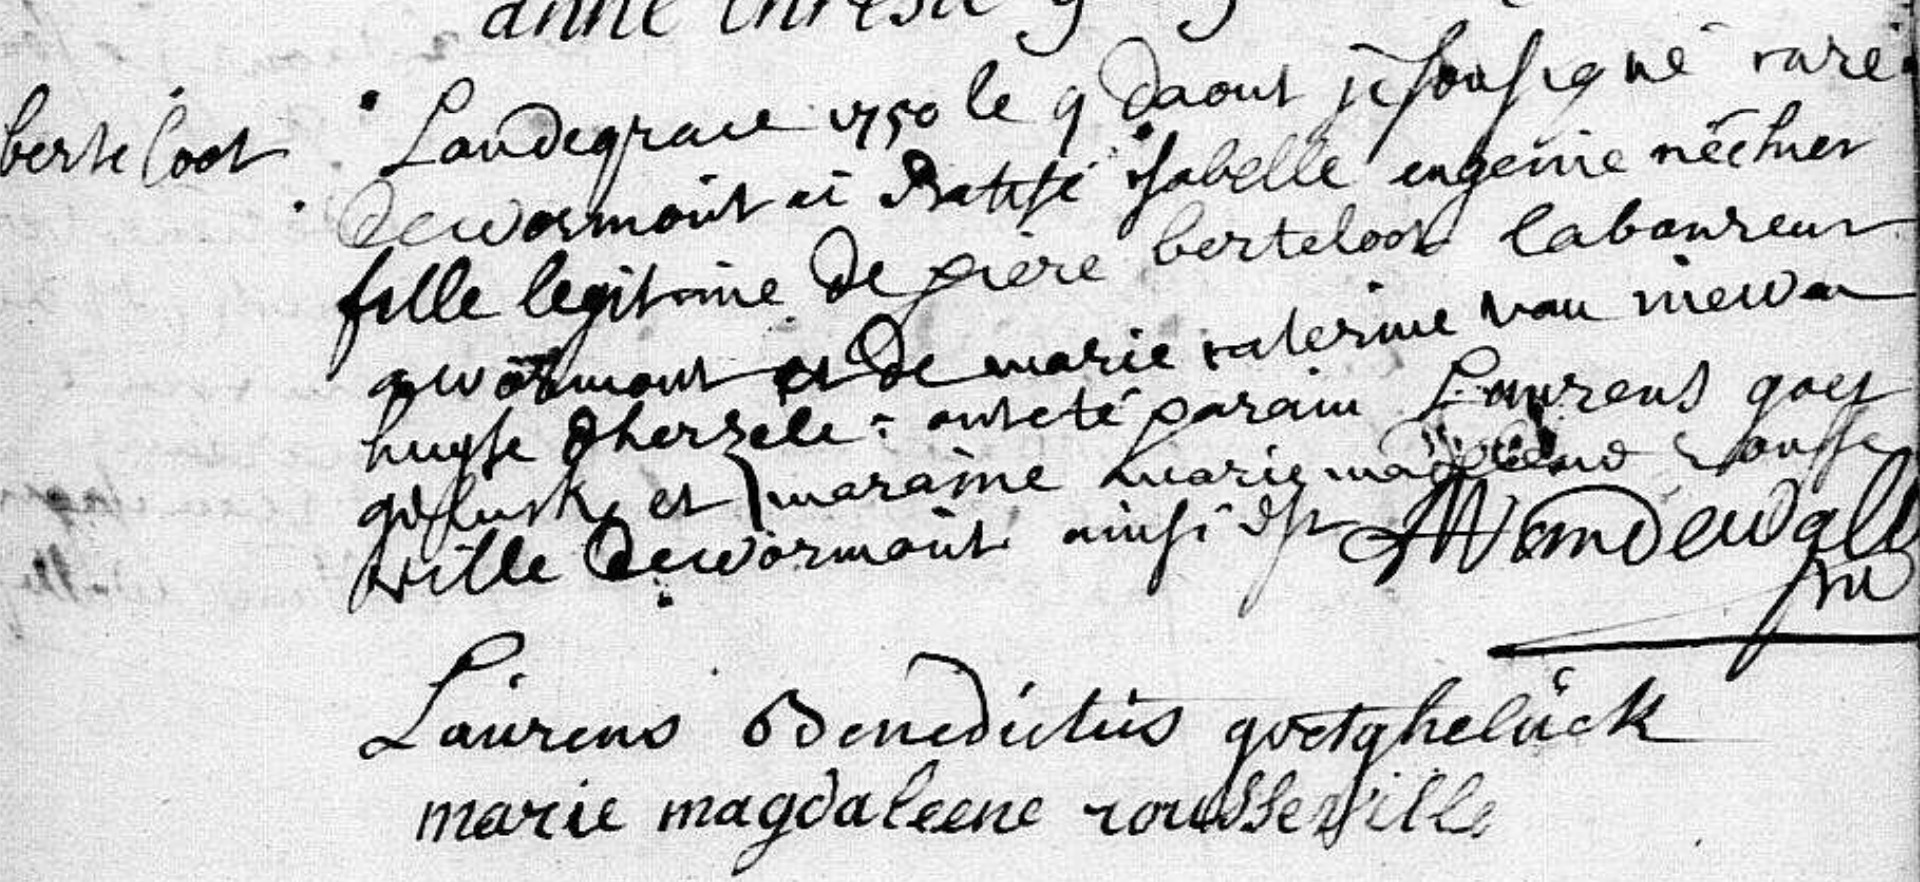 anne therese
berteloot
Landegrace 1750 le 9 daout je sousigné curé
dewormout ai Batisé isabelle eugenie née hier
fille legitime de piere berteloot laboureur
a wormout et de marie caterine van niewen
huyse dherzele : ont eté parain Laurens goet
geluck et maraine marie magdelene rousse
ville dewormout ainsi est Vandewalle
Laurens Benedictus goetghelück
marie magdaleene rousseville